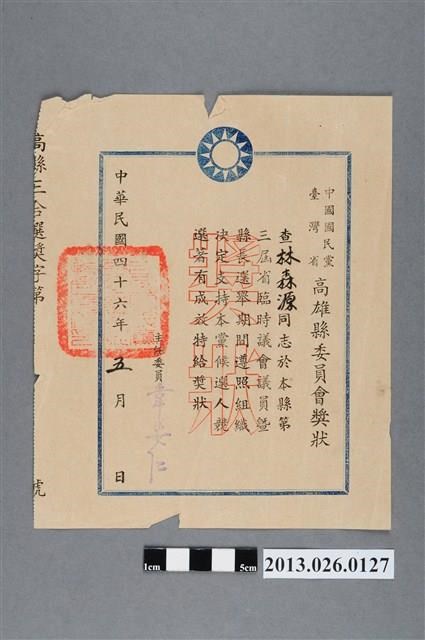 中國國民黨
臺灣省
高雄縣委員會獎狀
查林森源同志於本縣第
三屆省臨時議會議員暨
縣長選舉期間遵照組織
決定支持本黨候選人競
選著有成效特給獎狀
獎狀
主任委員
中華民國四十六年五月 日
高縣三合選獎字第 號
1cm
5cm
2013.026.0127